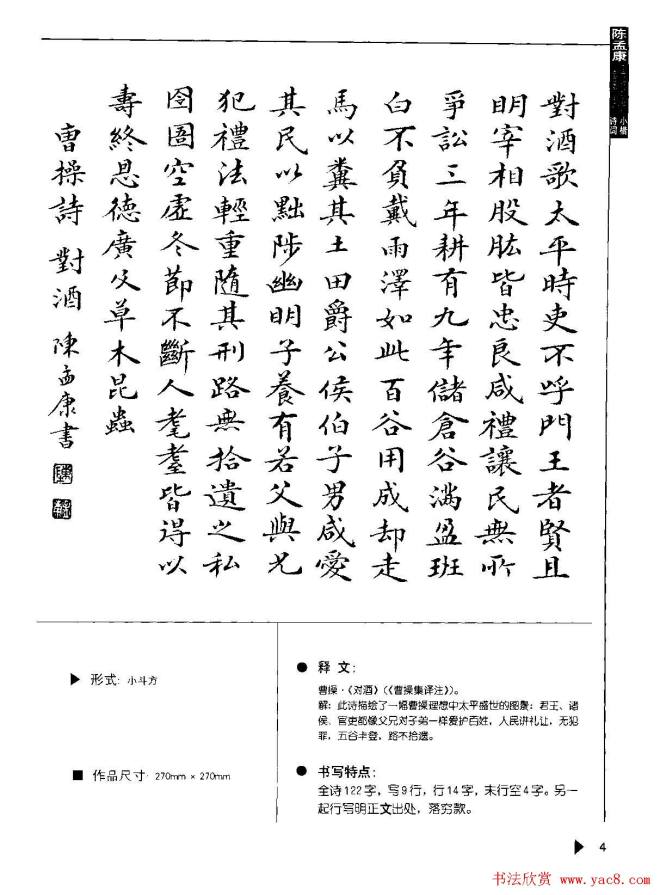 陈孟康
小楷
诗词
對酒歌太平時吏不呼門王者賢且
明宰相股肱皆忠良咸禮讓民無所
爭訟三年耕有九年儲倉谷滿盈班
白不負戴雨澤如此百谷用成却走
馬以糞其土田爵公侯伯子男咸愛
其民以黜陟幽明子養有若父與兄
犯禮法輕重隨其刑路無拾遺之私
囹圄空虛冬節不斷人耄耋皆得以
壽終恩德廣及草木昆蟲
曹操詩 對酒 陳孟康書
▶ 形式: 小斗方
■ 作品尺寸: 270mm × 270mm
● 释文:
曹操·《对酒》(《曹操集译注》)。
解: 此诗描绘了一幅曹操理想中太平盛世的图景: 君王、诸
侯、官吏都像父兄对子弟一样爱护百姓, 人民讲礼让, 无犯
罪, 五谷丰登, 路不拾遗。
● 书写特点:
全诗122字, 写9行, 行14字, 末行空4字。另一
起行写明正文出处, 落穷款。
▶ 4
书法欣赏 www.yac8.com